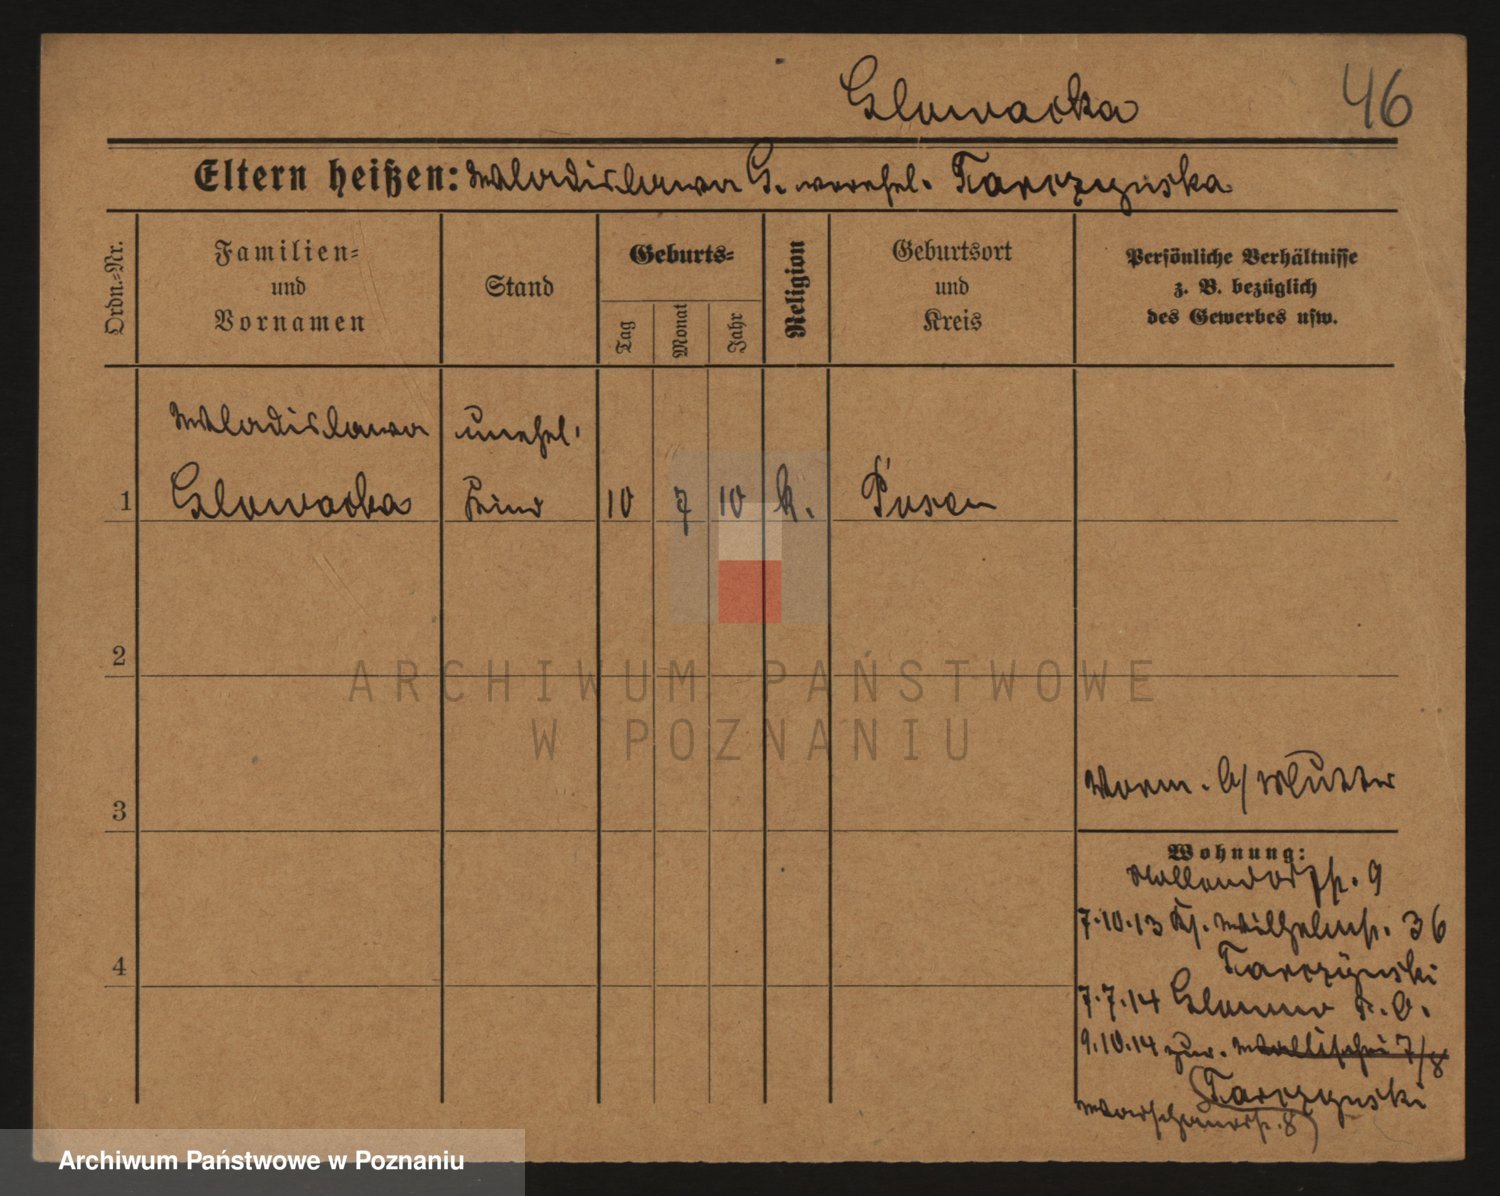 Glowacka
46
Eltern heißen: Wladislawa G. verehel. Tarczynska
Ordn.=Nr.
Familien=
und
Vornamen
Stand
Geburts=
Tag
Monat
Jahr
Religion
Geburtsort
und
Kreis
Persönliche Verhältnisse
z. B. bezüglich
des Gewerbes usw.
Wladislawa unehel.
1 Glowacka Kind 10 7 10 k. Posen
2
ARCHIWUM PAŃSTWOWE
W POZNANIU
3
Vorm. d/ Mutter
Wohnung:
Nollendorfstr. 9
7.10.13 Ks. Wilhelmstr. 36
Tarczynski
7.7.14 Glowno
9.10.14 zur. Wallischei 7/8
Tarczynski
Warschauerstr. 8
4
Archiwum Państwowe w Poznaniu